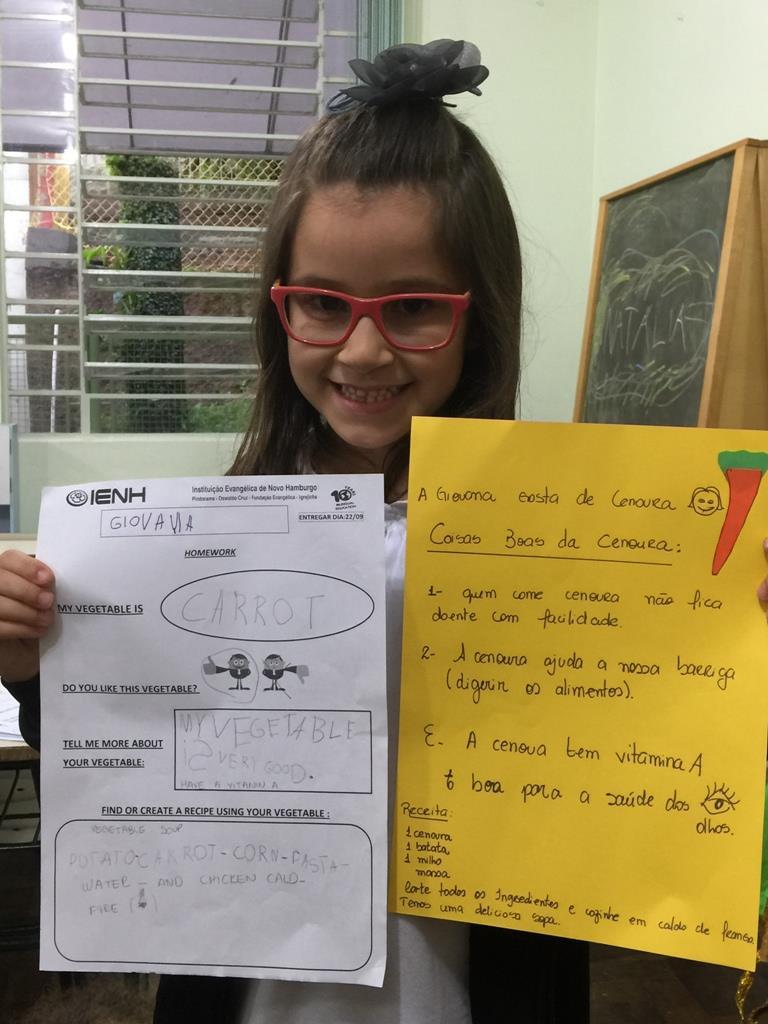 IENH
Instituição Evangélica de Novo Hamburgo
Pindorama - Oswaldo Cruz - Fundação Evangélica - Igrejinha
GIOVANA
ENTREGAR DIA:22/09
HOMEWORK
MY VEGETABLE IS
CARROT
DO YOU LIKE THIS VEGETABLE?
TELL ME MORE ABOUT
YOUR VEGETABLE:
MY VEGETABLE
IS VERY GOOD.
HAVE A VITAMIN A
FIND OR CREATE A RECIPE USING YOUR VEGETABLE :
VEGETABLE SOUP
POTATO-CARROT-CORN-PASTA-
WATER - AND CHICKEN CALD-
FIRE
A Giovana gosta de Cenoura
Coisas Boas da Cenoura:
1- quem come cenoura não fica
doente com facilidade.
2- A cenoura ajuda a nossa barriga
(digerir os alimentos).
3. A cenoua tem vitamina A
é boa para a saúde dos
olhos.
Receita:
1 cenoura
1 batata
1 milho
massa
Corte todos os Ingredientes e cozinhe em caldo de frango.
Temos uma deliciosa sopa.